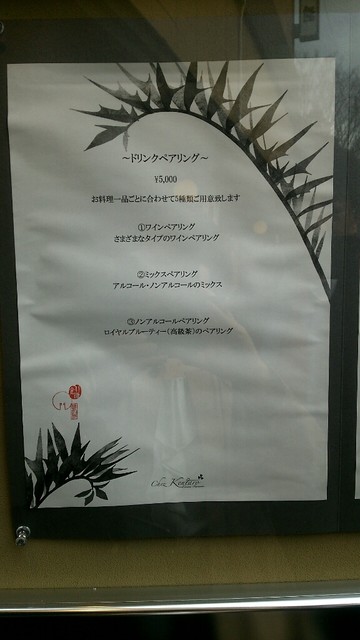 ～ドリンクペアリング～
¥5,000
お料理一品ごとに合わせて5種類ご用意致します
①ワインペアリング
さまざまなタイプのワインペアリング
②ミックスペアリング
アルコール・ノンアルコールのミックス
③ノンアルコールペアリング
ロイヤルブルーティー（高級茶）のペアリング
Chez Kentaro